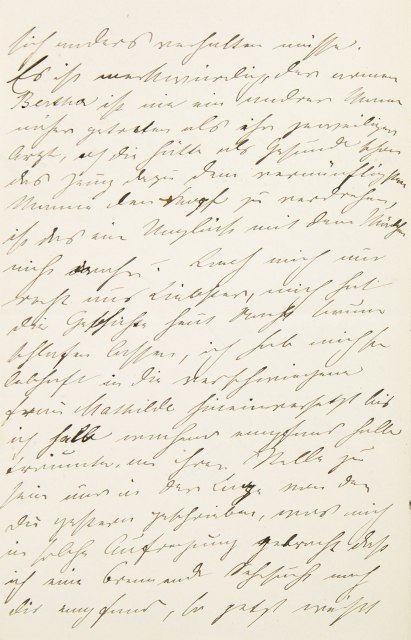 sich anders verhalten müsse.
Es ist merkwürdig, der armen
Bertha ist nie ein andrer Mann
näher getreten als ihr jeweiliger
Arzt, u. die hätte als Gesunde schon
das Zeug dazu dem vernünftigsten
Manne den Kopf zu verdrehen,
ist das ein Unglück mit dem Mädchen
nicht wahr? Lach mich nur
recht aus Liebster, mich hat
die Geschichte heut Nacht kaum
schlafen lassen, ich hab mich so
lebhaft in die verschwiegene
Frau Mathilde hineinversetzt bis
ich halb wachend empfand halb
träumte, an ihrer Stelle zu
sein und in der Lage von der
Du gestern geschrieben, was mich
in solche Aufregung gebracht daß
ich eine brennende Sehnsucht nach
dir empfand, bis jetzt